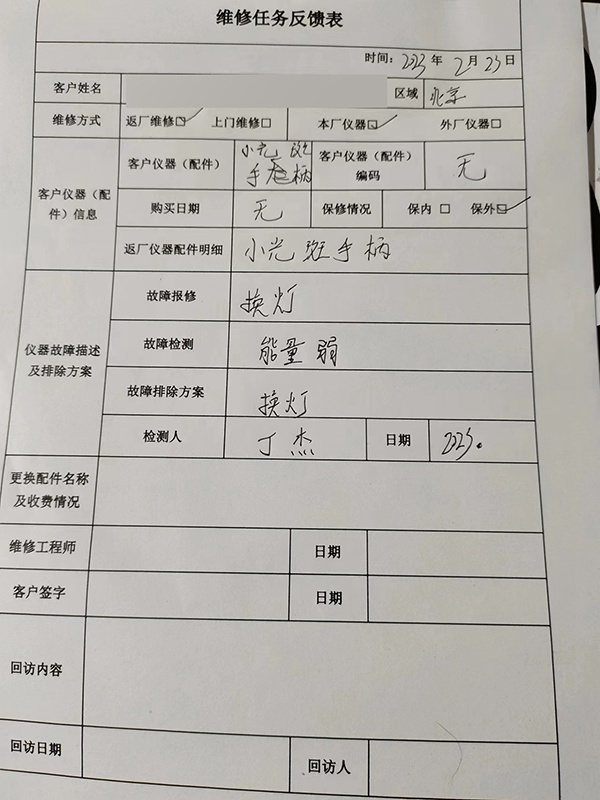 维修任务反馈表
时间：2023 年 2 月 23 日
客户姓名 区域 北京
维修方式 返厂维修☑ 上门维修□ 本厂仪器☑ 外厂仪器□
客户仪器（配件）信息 客户仪器（配件） 小光斑手柄 客户仪器（配件）编码 无
购买日期 无 保修情况 保内 □ 保外☑
返厂仪器配件明细 小光斑手柄
仪器故障描述及排除方案 故障报修 换灯
故障检测 能量弱
故障排除方案 换灯
检测人 丁杰 日期 2023.
更换配件名称及收费情况
维修工程师 日期
客户签字 日期
回访内容
回访日期 回访人